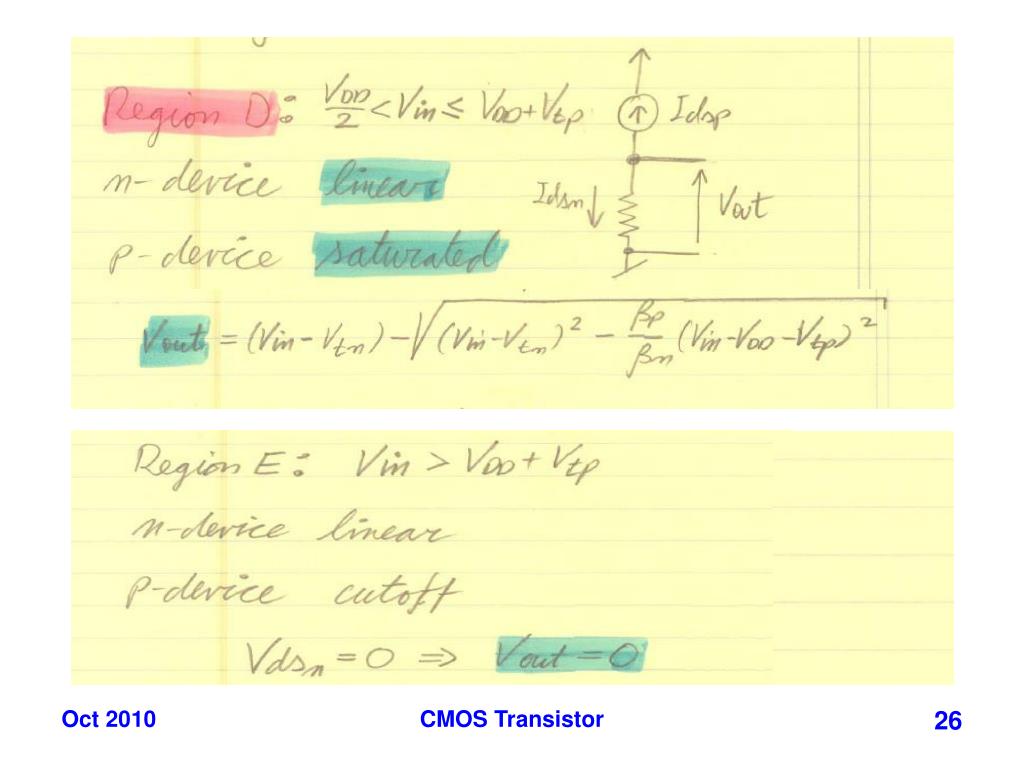 Region D: VDD/2 < Vin ≤ VDD + Vtp
Idsp
n-device linear
Idsn
Vout
p-device saturated
Vout = (Vin - Vtn) - √((Vin - Vtn)² - βp/βn (Vin - VDD - Vtp)²)
Region E: Vin > VDD + Vtp
n-device linear
p-device cutoff
Vdsn = 0 ⇒ Vout = 0
Oct 2010 CMOS Transistor 26